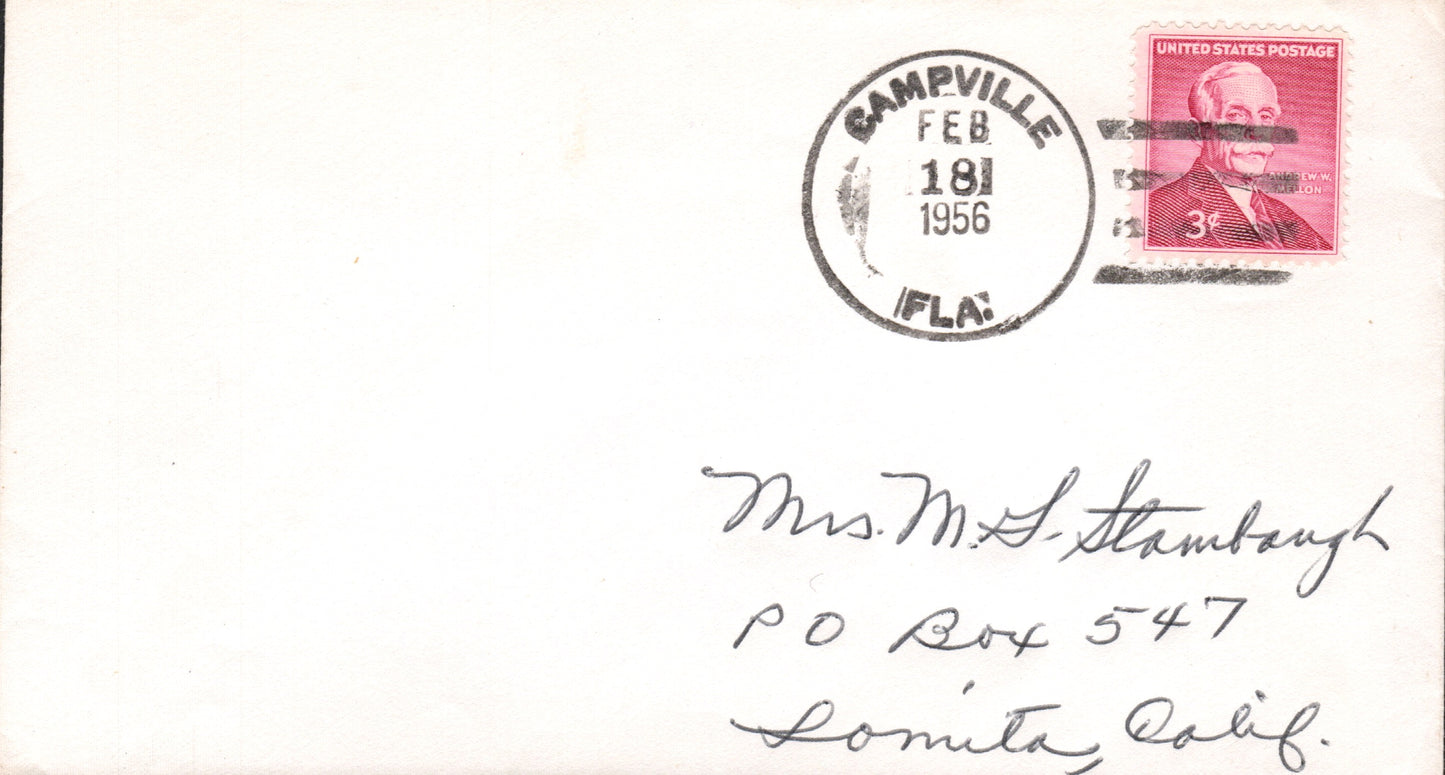 UNITED STATES POSTAGE
ANDREW W.
MELLON
3¢
CAMPVILLE
FEB
18
1956
FLA.
Mrs. M. S. Stambaugh
PO Box 547
Lomita, Calif.